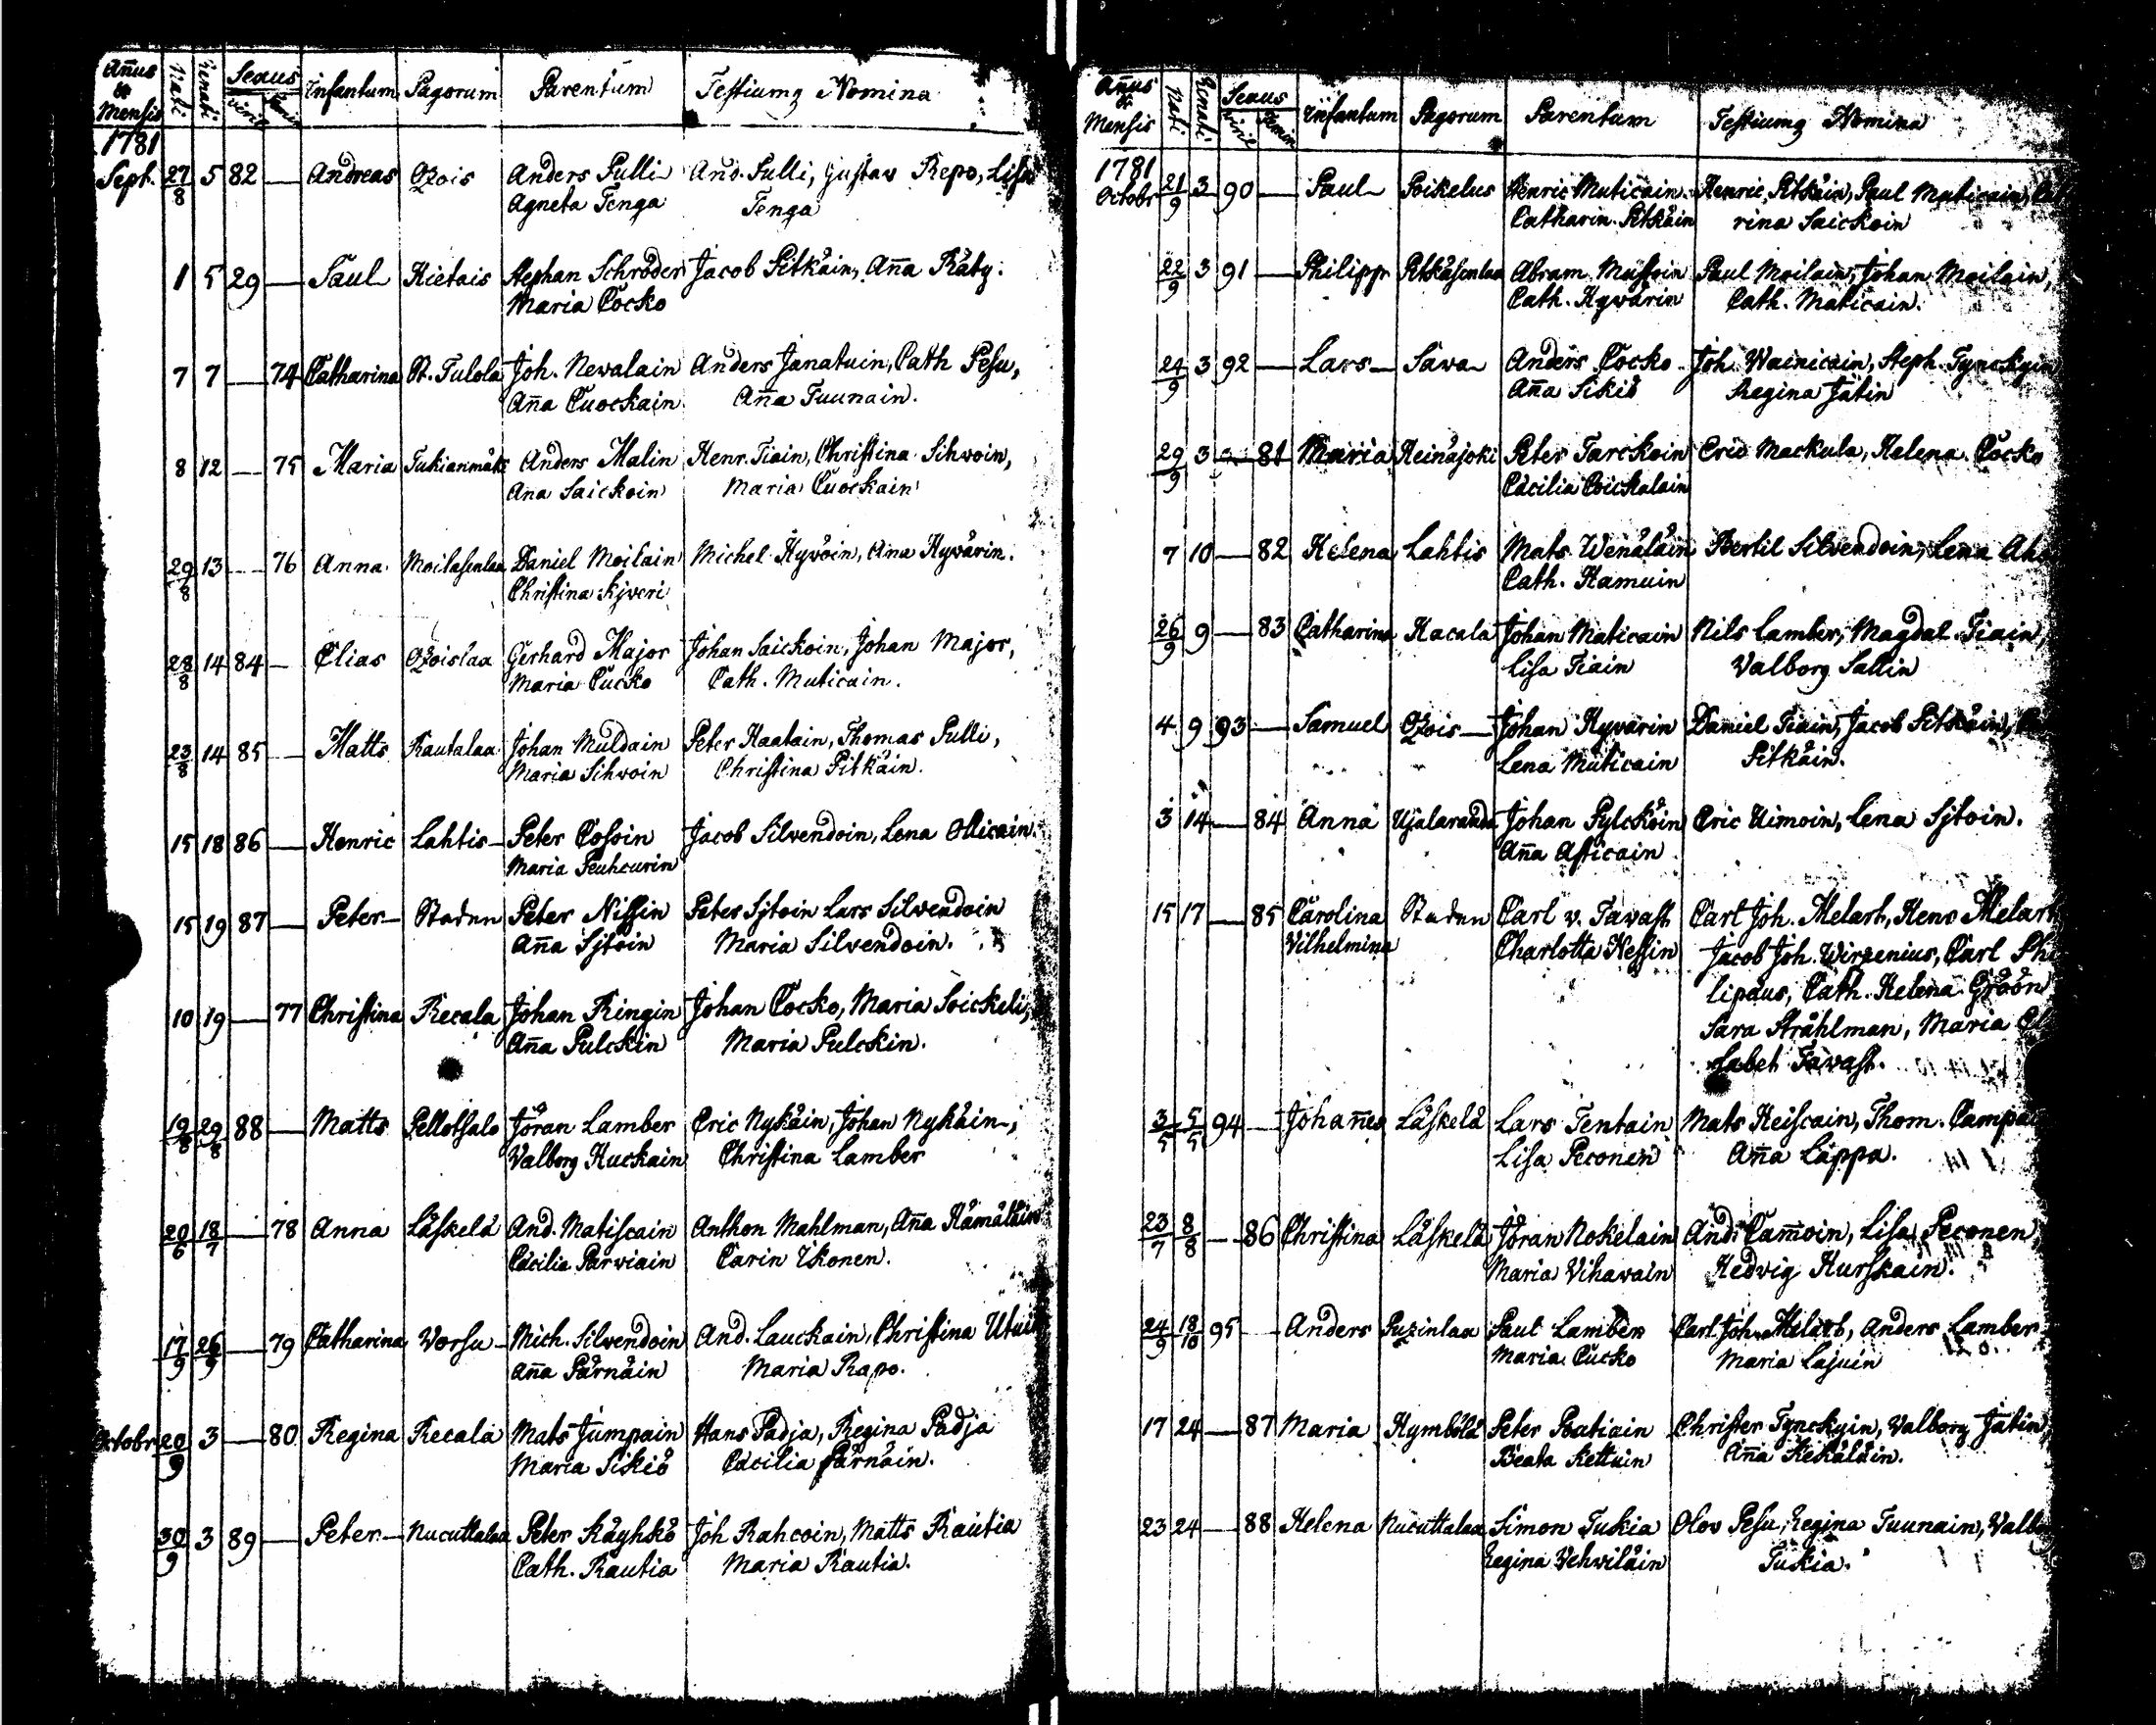 Añus & Mensis Nati Renati Sexus Infantum Pagorum Parentum Testiumq Nomina
virile femin
1781
Sept. 27/8 5 82 — Andreas Ozois Anders Pulli And. Pulli, Gustav Repo, Lisa
Agneta Tenga Tenga
1 5 29 — Paul Hietais Stephan Schröder Jacob Pitkäin, Aña Räty.
Maria Cocko
7 7 — 74 Catharina St. Tulola Joh. Newalain Anders Janatuin, Cath Pesu,
Aña Cuockain Aña Tuunain.
8 12 — 75 Maria Tukianmäki Anders Malin Henr. Tiain, Christina Sihvoin,
Ana Saickoin Maria Cuockain
29/8 13 — 76 Anna Moilasenlaa Daniel Moilain Michel Hyvöin, Ana Hyvärin.
Christina Kjveri
28/8 14 84 — Elias Ozoislaa Gerhard Major Johan Saickoin, Johan Major,
Maria Cucko Cath. Muticain.
23/8 14 85 — Matts Rautalaa Johan Muldain Peter Haatain, Thomas Pulli,
Maria Sihvoin Christina Pitkäin.
15 18 86 — Henric Lahtis Peter Cosoin Jacob Silvendoin, Lena Ollicain.
Maria Peuhcurin
15 19 87 — Peter Staden Peter Nissin Peter Sjtoin Lars Silvendoin
Aña Sjtoin Maria Silvendoin.
10 19 — 77 Christina Recala Johan Ringin Johan Cocko, Maria Soickeli,
Aña Pulckin Maria Pulckin.
19/8 29/8 88 — Matts Pellotsalo Jöran Lamber Eric Nykäin, Johan Nykäin,
Valborg Huckain Christina Lamber
20/6 18/7 — 78 Anna Läskelä And. Matiscain Anthon Mahlman, Aña Hämäläin
Cäcilia Parviain Carin Ikonen.
17/9 26/9 — 79 Catharina Worsu Mich. Silvendoin And. Lauckain, Christina
Aña Pärnäin Maria Rapo.
Octobr 20/9 3 — 80 Regina Recala Mats Jumpain Hans Padja, Regina Padja
Maria Sikiö Cäcilia Pärnäin.
30/9 3 89 — Peter Nucuttalaa Peter Käyhkö Joh Rahcoin, Matts Rautia
Cath. Rautia Maria Rautia.
Añus & Mensis Nati Renati Sexus Infantum Pagorum Parentum Testiumq Nomina
virile femin
1781
Octobr 21/9 3 90 — Paul Poikelus Henric Muticain Henric Pitkäin, Paul Muticain,
Catharin. Pitkäin rina Saickoin
22/9 3 91 — Philipp Pitkäsenlaa Abram Mustoin Paul Moilain, Johan Moilain,
Cath. Hyvärin Cath. Maticain.
24/9 3 92 — Lars Sava Anders Cocko Joh. Wainicain, Steph. Tynckyin
Aña Sikiö Regina Jätin
29/9 3 — 81 Maria Heinäjoki Peter Tarckoin Eric Mackula, Helena Cocko
Cäcilia Coickalain
7 10 — 82 Helena Lahtis Mats Wenäläin Bertil Silvendoin, Lena
Cath. Hamuin
26/9 9 — 83 Catharina Hacala Johan Maticain Nils Lamber, Magdal. Tiain,
Lisa Tiain Valborg Sallin
4 9 93 — Samuel Ozois Johan Hyvärin Daniel Tiain, Jacob Pitkäin,
Lena Muticain Pitkäin.
3 14 — 84 Anna Ujalaranda Johan Pylcköin Eric Uimoin, Lena Sjtoin.
Aña Asticain
15 17 — 85 Carolina Staden Carl v. Tavast Carl Joh. Melart, Henr Melart
Vilhelmina Charlotta Nessin Jacob Joh. Wirzenius, Carl Phi
lipæus, Cath. Helena Gröön
Sara Stråhlman, Maria
sabet Tavast.
3/5 5/5 94 — Johañes Läskelä Lars Tentain Mats Heiscain, Thom.
Lisa Peconen Aña Lappa.
23/7 8/8 — 86 Christina Läskelä Jöran Nokelain And. Cam̄oin, Lisa Peconen
Maria Vihavain Hedvig Hurskain.
24/9 18/10 95 — Anders Puzinlaa Paul Lamber Carl Joh. Melart, Anders Lamber
Maria Cucko Maria Lajuin
17 24 — 87 Maria Kymbölä Peter Ratiain Christer Tynckyin, Valborg Jätin,
Beata Kettuin Aña Kekäläin.
23 24 — 88 Helena Nucuttalaa Simon Tukia Olov Pesu, Regina Tuunain,
Regina Vehviläin Tukia.